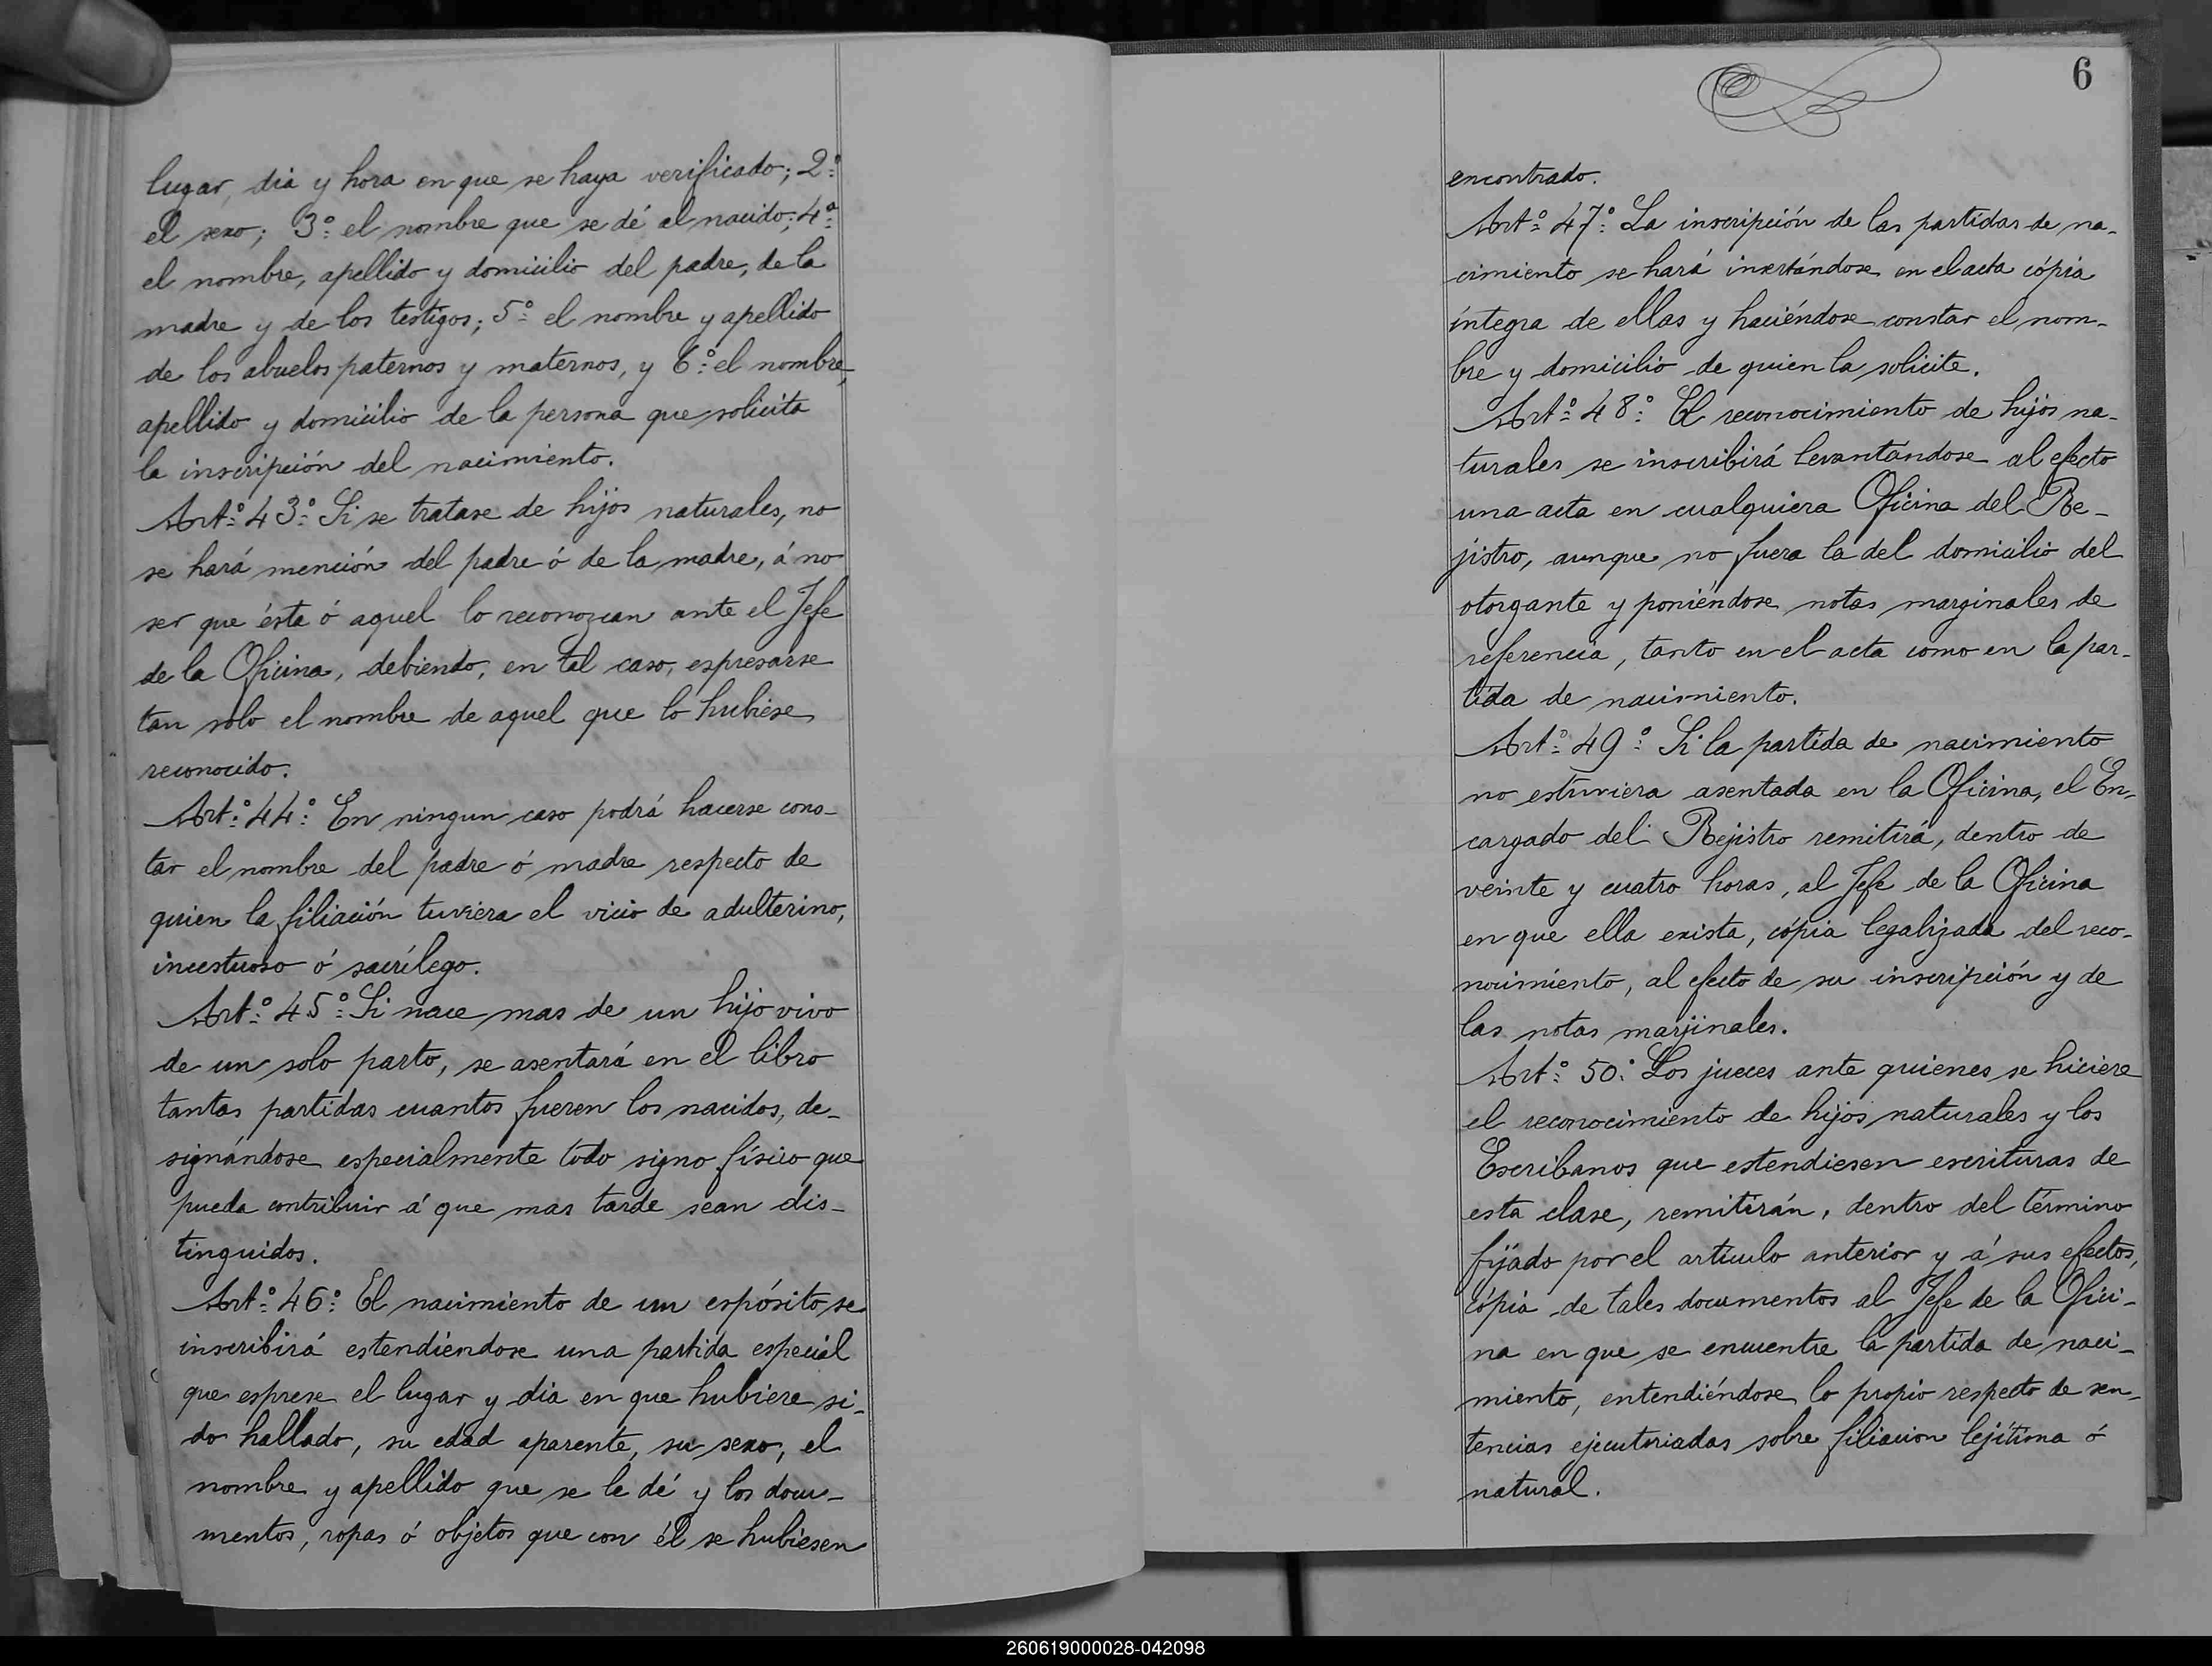 lugar, dia y hora en que se haya verificado; 2º
el sexo; 3º el nombre que se dé al nacido; 4º
el nombre, apellido y domicilio del padre, de la
madre y de los testigos; 5º el nombre y apellido
de los abuelos paternos y maternos, y 6º el nombre,
apellido y domicilio de la persona que solicita
la inscripción del nacimiento.
Artº 43º Si se tratase de hijos naturales, no
se hará mención del padre ó de la madre, á no
ser que ésta ó aquel lo reconozcan ante el Jefe
de la Oficina, debiendo, en tal caso, espresarse
tan solo el nombre de aquel que lo hubiese
reconocido.
Artº 44º En ningun caso podrá hacerse cons-
tar el nombre del padre ó madre respecto de
quien la filiación tuviera el vicio de adulterino,
incestuoso ó sacrílego.
Artº 45º Si nace mas de un hijo vivo
de un solo parto, se asentará en el libro
tantas partidas cuantos fueren los nacidos, de-
signándose especialmente todo signo físico que
pueda contribuir á que mas tarde sean dis-
tinguidos.
Artº 46º El nacimiento de un espósito se
inscribirá estendiéndose una partida especial
que esprese el lugar y dia en que hubiere si-
do hallado, su edad aparente, su sexo, el
nombre y apellido que se le dé y los docu-
mentos, ropas ó objetos que con él se hubiesen
6
encontrado.
Artº 47º La inscripción de las partidas de na-
cimiento se hará insertándose en el acta cópia
íntegra de ellas y haciéndose constar el nom-
bre y domicilio de quien la solicite.
Artº 48º El reconocimiento de hijos na-
turales se inscribirá levantandose al efecto
una acta en cualquiera Oficina del Re-
jistro, aunque no fuera la del domicilio del
otorgante y poniéndose notas marginales de
referencia, tanto en el acta como en la par-
tida de nacimiento.
Artº 49º Si la partida de nacimiento
no estuviera asentada en la Oficina, el En-
cargado del Rejistro remitirá, dentro de
veinte y cuatro horas, al Jefe de la Oficina
en que ella exista, cópia legalizada del reco-
nocimiento, al efecto de su inscripción y de
las notas marjinales.
Artº 50º Los jueces ante quienes se hiciere
el reconocimiento de hijos naturales y los
Escribanos que estendiesen escrituras de
esta clase, remitirán, dentro del término
fijado por el artículo anterior y á sus efectos,
cópia de tales documentos al Jefe de la Ofici-
na en que se encuentre la partida de naci-
miento, entendiéndose lo propio respecto de sen-
tencias ejecutoriadas sobre filiacion lejítima ó
natural.
260619000028-042098